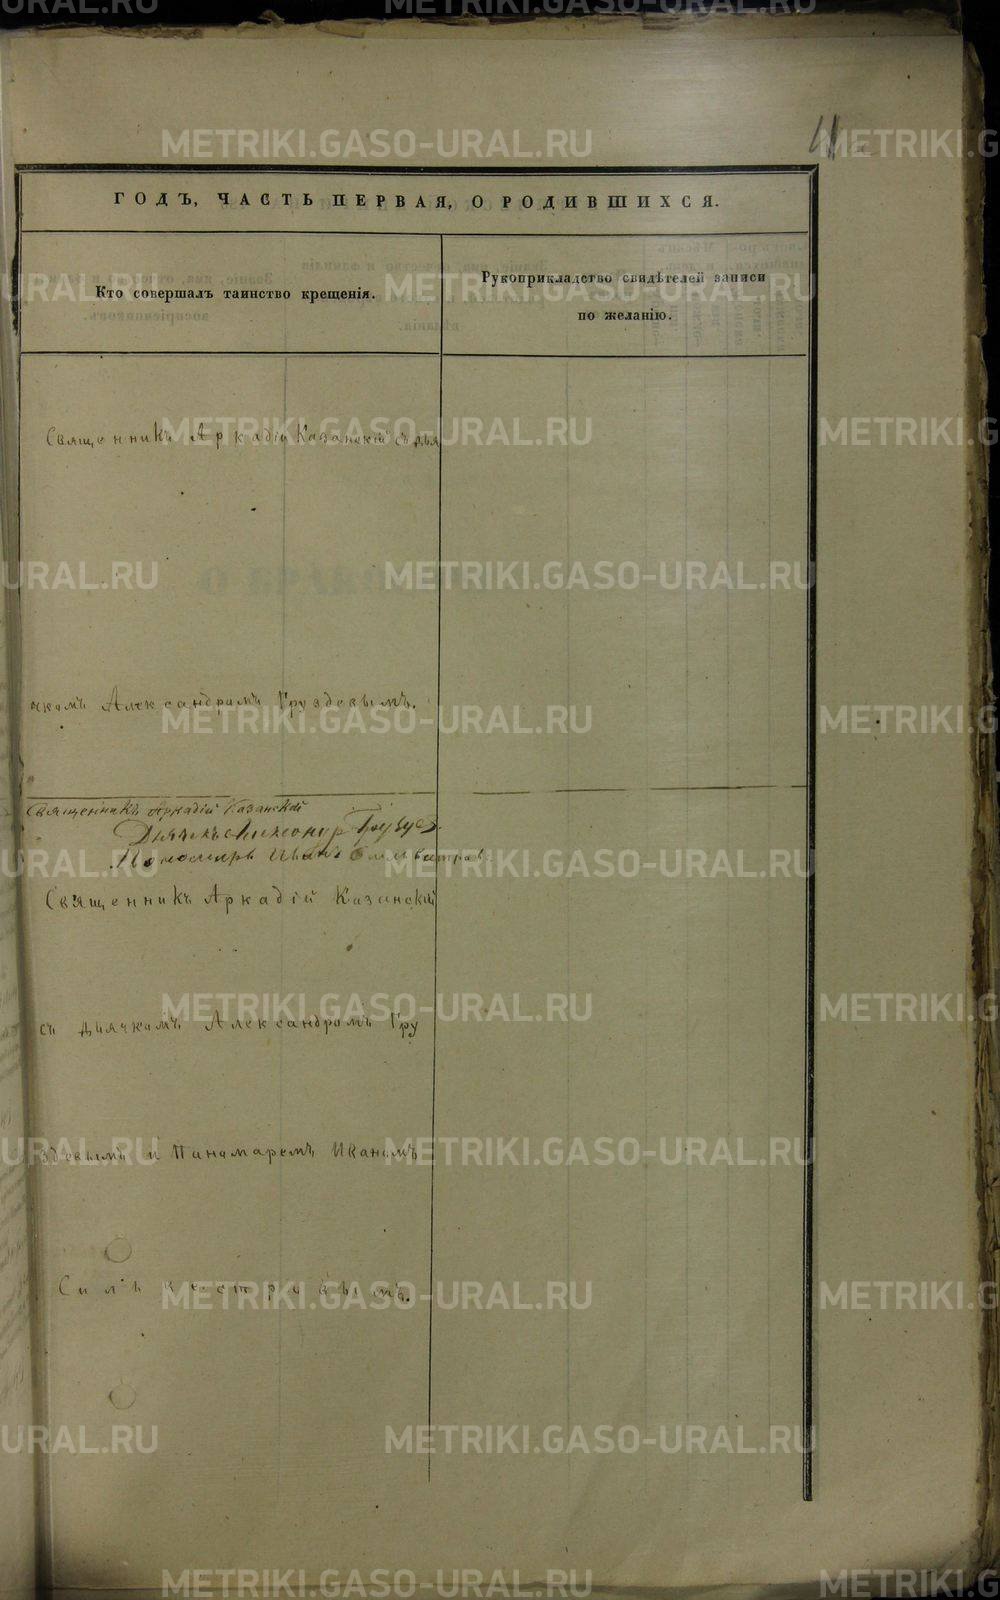 ГОДЪ, ЧАСТЬ ПЕРВАЯ, О РОДИВШИХСЯ.
Кто совершалъ таинство крещенія.
Рукоприкладство свидѣтелей записи
по желанію.
Священникъ Аркадій Казанскій съ дья
чкомъ Александромъ Груздевымъ.
Священникъ Аркадій Казанской
Дьячекъ Александръ
Пономарь Иванъ Сильвестровъ
Священникъ Аркадій Казанскій
съ диячкомъ Александромъ Гру
здевымъ и Панамаремъ Иваномъ
Сильвестровымъ.
METRIKI.GASO-URAL.RU